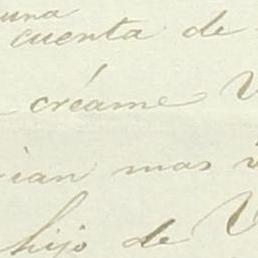 una
cuenta de
créame V
ian mas
hijo de V